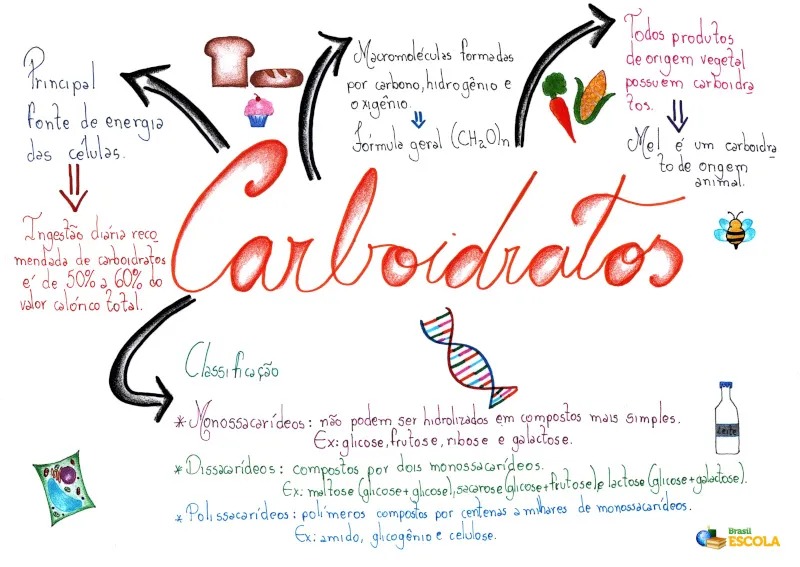 Principal
fonte de energia
das células.
Ingestão diária reco
mendada de carboidratos
é de 50% a 60% do
valor calórico total.
Macromoléculas formadas
por carbono, hidrogênio e
oxigênio.
Fórmula geral (CH₂O)n
Todos produtos
de origem vegetal
possuem carboidra
tos.
Mel é um carboidra
to de origem
animal.
Carboidratos
Classificação
* Monossacarídeos: não podem ser hidrolizados em compostos mais simples.
Ex: glicose, frutose, ribose e galactose.
* Dissacarídeos: compostos por dois monossacarídeos.
Ex: maltose (glicose+glicose), sacarose (glicose+frutose) e lactose (glicose+galactose).
* Polissacarídeos: polímeros compostos por centenas a milhares de monossacarídeos.
Ex: amido, glicogênio e celulose.
Leite
Brasil
ESCOLA